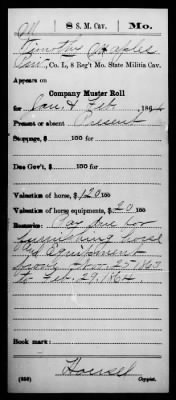 M 8 S. M. Cav. Mo.
Timothy Staples
Pvt., Co. L, 8 Reg't Mo. State Militia Cav.
Appears on
Company Muster Roll
for Jan. & Feb, 1864
Present or absent Present
Stoppage, $ 100 for
Due Gov't, $ 100 for
Valuation of horse, $ 120 100
Valuation of horse equipments, $ 20 100
Remarks: Pay due for
furnishing horse
and Equipment
from Nov 25 1863
to Feb. 29, 1864.
Book mark:
(356) Copyist.